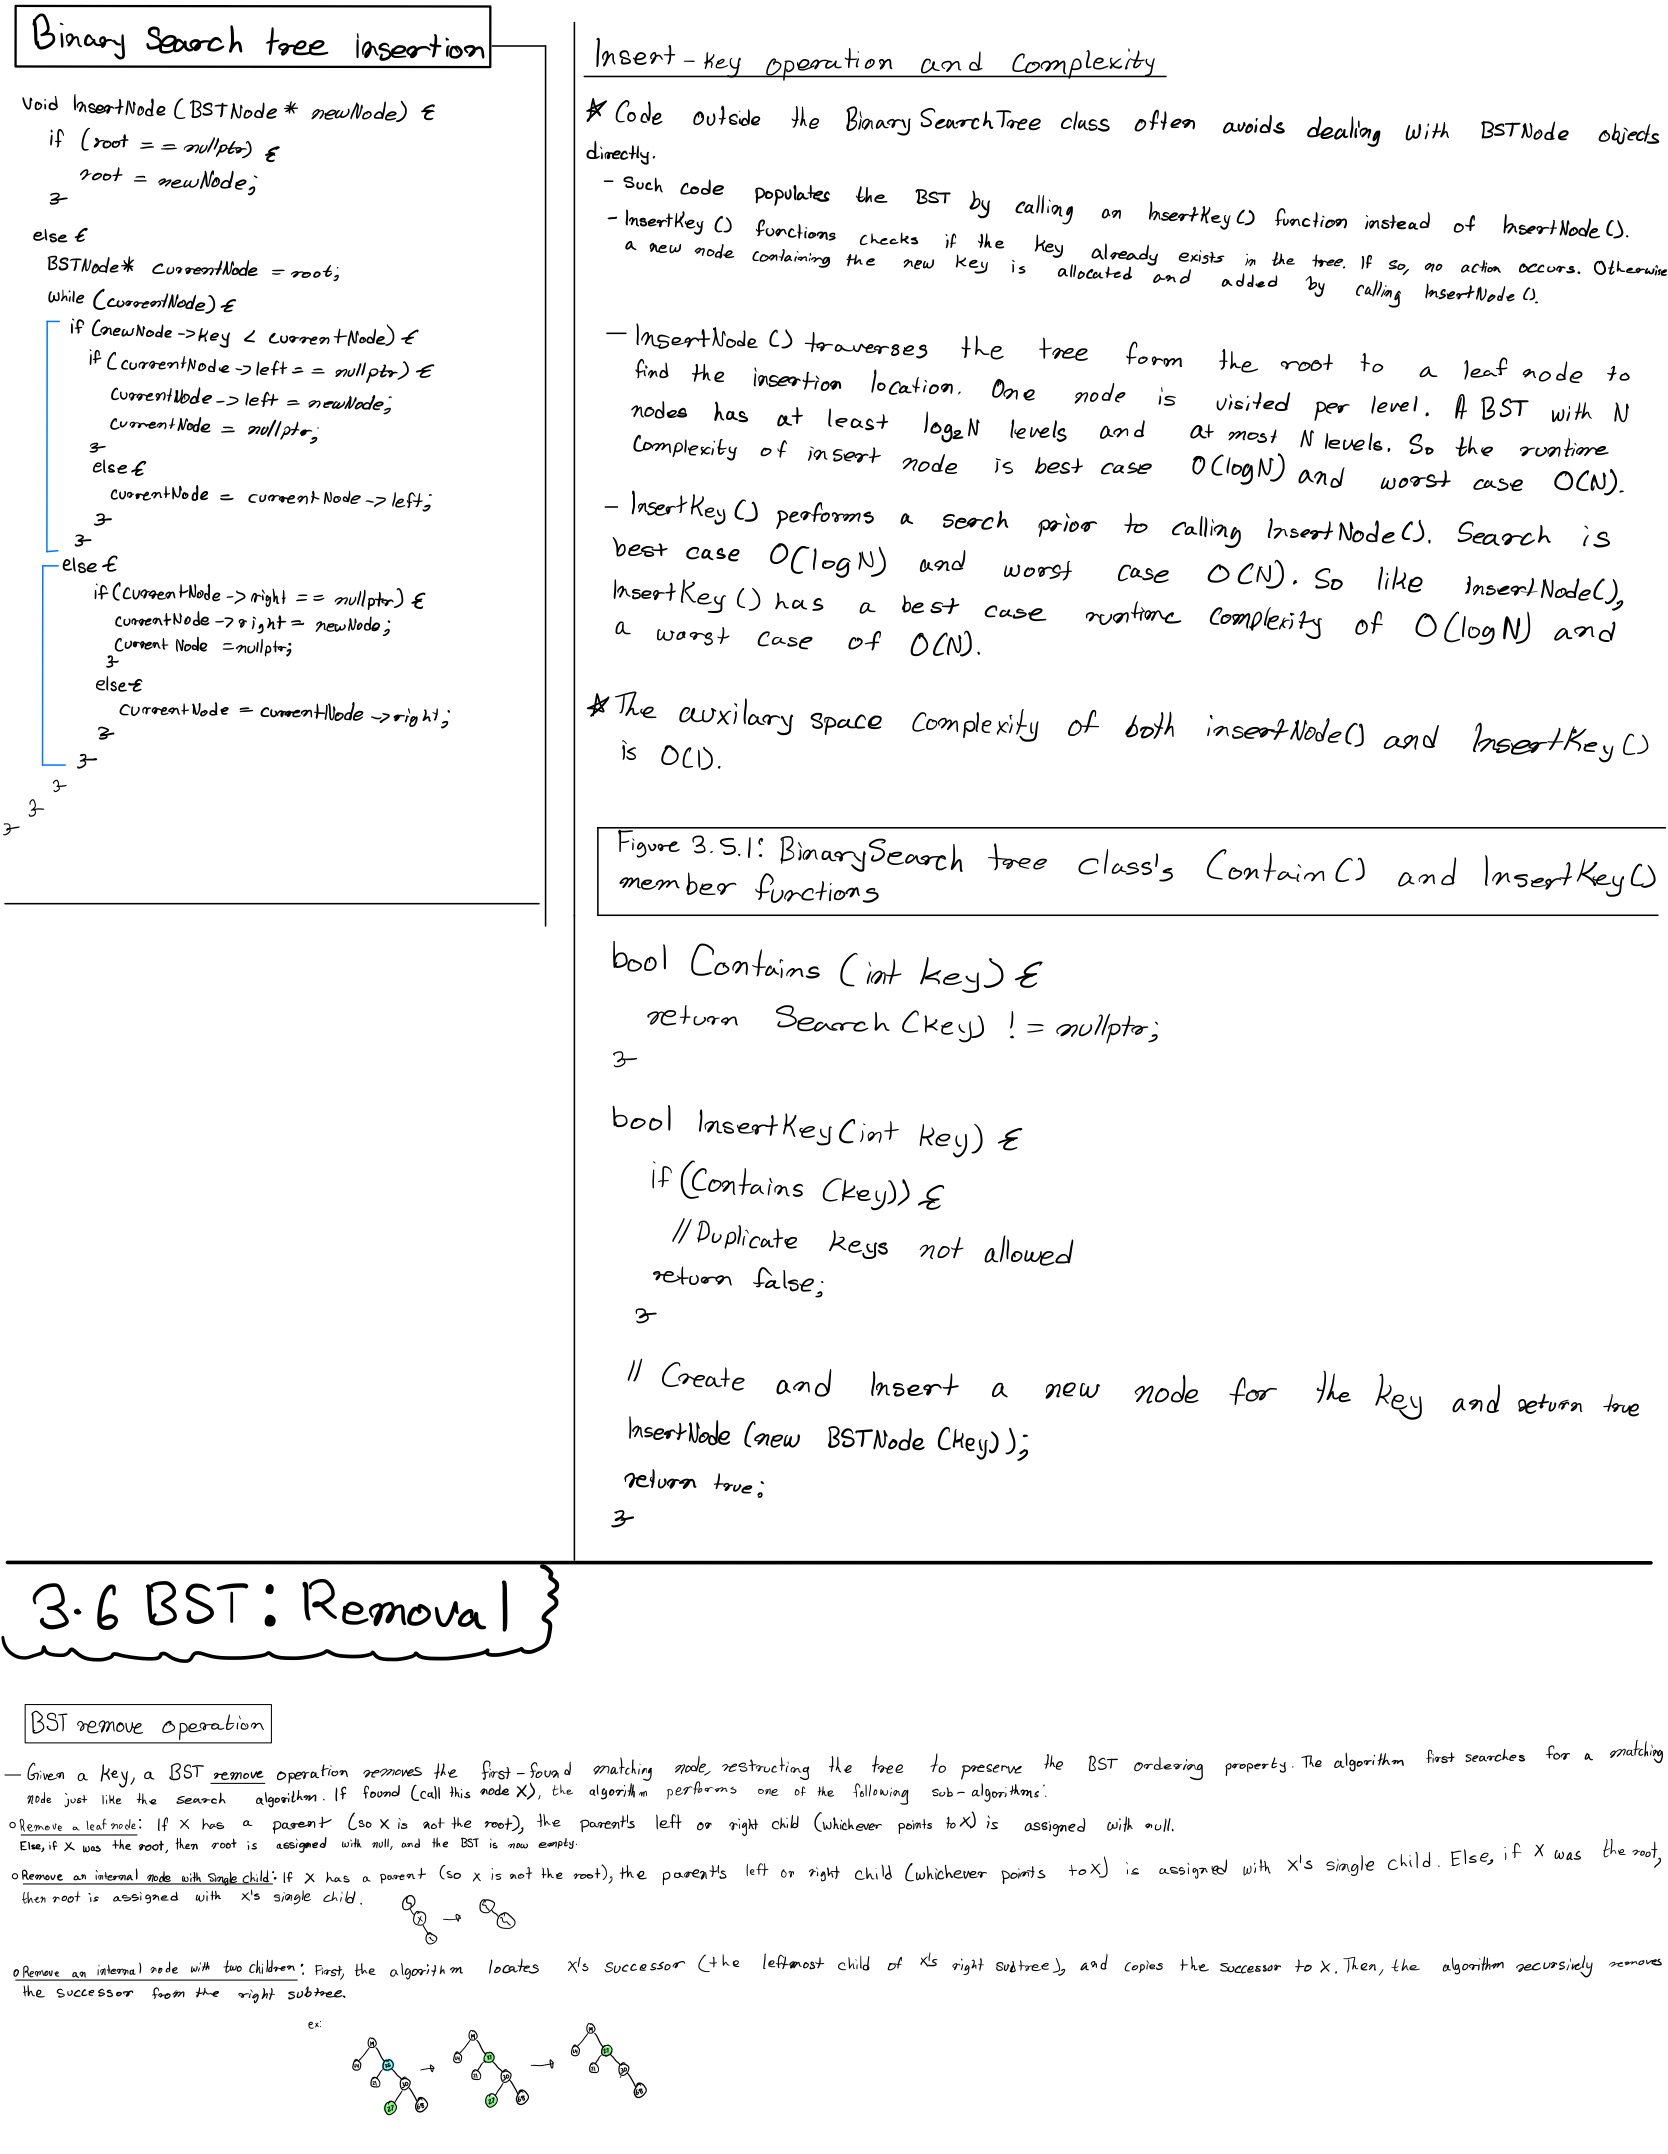 Binary Search tree insertion
Void InsertNode (BSTNode* newNode) {
if (root == nullptr) {
root = newNode;
}
else {
BSTNode* currentNode = root;
while (currentNode) {
if (newNode->key < currentNode) {
if (currentNode->left == nullptr) {
currentNode->left = newNode;
currentNode = nullptr;
}
else {
currentNode = currentNode->left;
}
}
else {
if (currentNode->right == nullptr) {
currentNode->right = newNode;
Current Node = nullptr;
}
else {
currentNode = currentNode->right;
}
}
}
}
}
Insert-key operation and Complexity
* Code outside the BinarySearchTree class often avoids dealing with BSTNode objects
directly.
- Such code populates the BST by calling an InsertKey() function instead of InsertNode().
- InsertKey() functions checks if the key already exists in the tree. If so, no action occurs. Otherwise
a new node containing the new key is allocated and added by calling InsertNode().
- InsertNode() traverses the tree form the root to a leaf node to
find the insertion location. One node is visited per level. A BST with N
nodes has at least log₂N levels and at most N levels. So the runtime
Complexity of insert node is best case O(logN) and worst case O(N).
- InsertKey() performs a serch prior to calling InsertNode(). Search is
best case O(logN) and worst case O(N). So like InsertNode(),
InsertKey() has a best case runtime complexity of O(logN) and
a warst case of O(N).
* The auxilary space complexity of both insertNode() and InsertKey()
is O(1).
Figure 3.5.1: BinarySearch tree class's Contain() and InsertKey()
member functions
bool Contains (int key) {
return Search(key) != nullptr;
}
bool InsertKey(int key) {
if (Contains (key)) {
//Duplicate keys not allowed
return false;
}
// Create and Insert a new node for the key and return true
InsertNode (new BSTNode (key));
return true;
}
3.6 BST: Removal
BST remove operation
- Given a key, a BST remove operation removes the first-found matching node, restructing the tree to preserve the BST ordering property. The algorithm first searches for a matching
node just like the search algorithm. If found (call this node X), the algorithm performs one of the following sub-algorithms:
o Remove a leaf node: If X has a parent (so X is not the root), the parent's left or right child (whichever points to X) is assigned with null.
Else, if X was the root, then root is assigned with null, and the BST is now empty.
o Remove an internal node with Single child: If X has a parent (so x is not the root), the parent's left or right child (whichever points to X) is assigned with X's single child. Else, if X was the root,
then root is assigned with X's single child.
X
o Remove an internal node with two Children: First, the algorithm locates X's successor (the leftmost child of X's right subtree), and copies the successor to X. Then, the algorithm recursively removes
the successor from the right subtree.
ex: